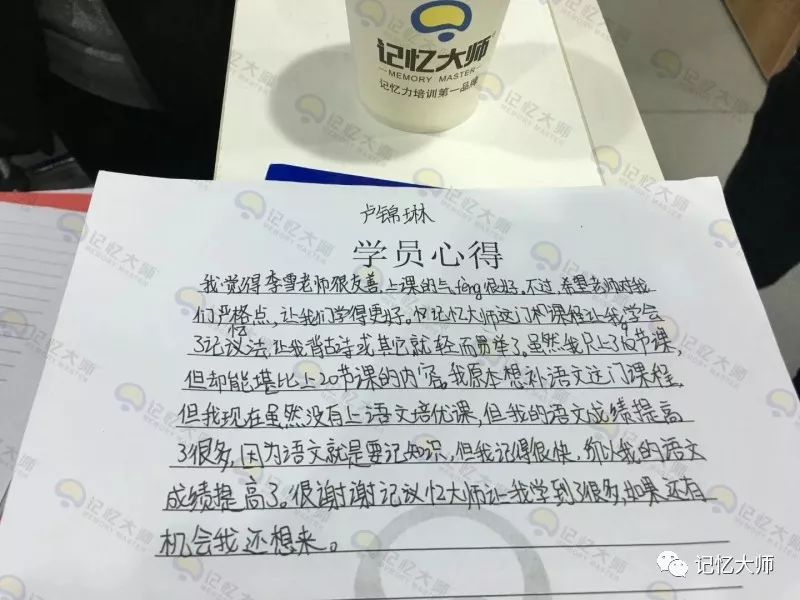 记忆大师
MEMORY MASTER
记忆力培训第一品牌
卢锦琳
学员心得
我觉得李雪老师很友善,上课的气fēng很好。不过,希望老师对我
们严格点,让我们学得更好。记忆大师这门课程让我学会
了记忆法,让我背古诗或其它就轻而易举了。虽然我只上了10节课,
但却能堪比上20节课的内容。我原本想补语文这门课程,
但我现在虽然没有上语文培优课,但我的语文成绩提高
了很多,因为语文就是要记知识,但我记得很快,所以我的语文
成绩提高了。很谢谢记忆大师让我学到了很多,如果还有
机会我还想来。
记忆大师